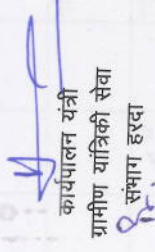 कार्यपालन यंत्री
ग्रामीण यांत्रिकी सेवा
संभाग हरदा